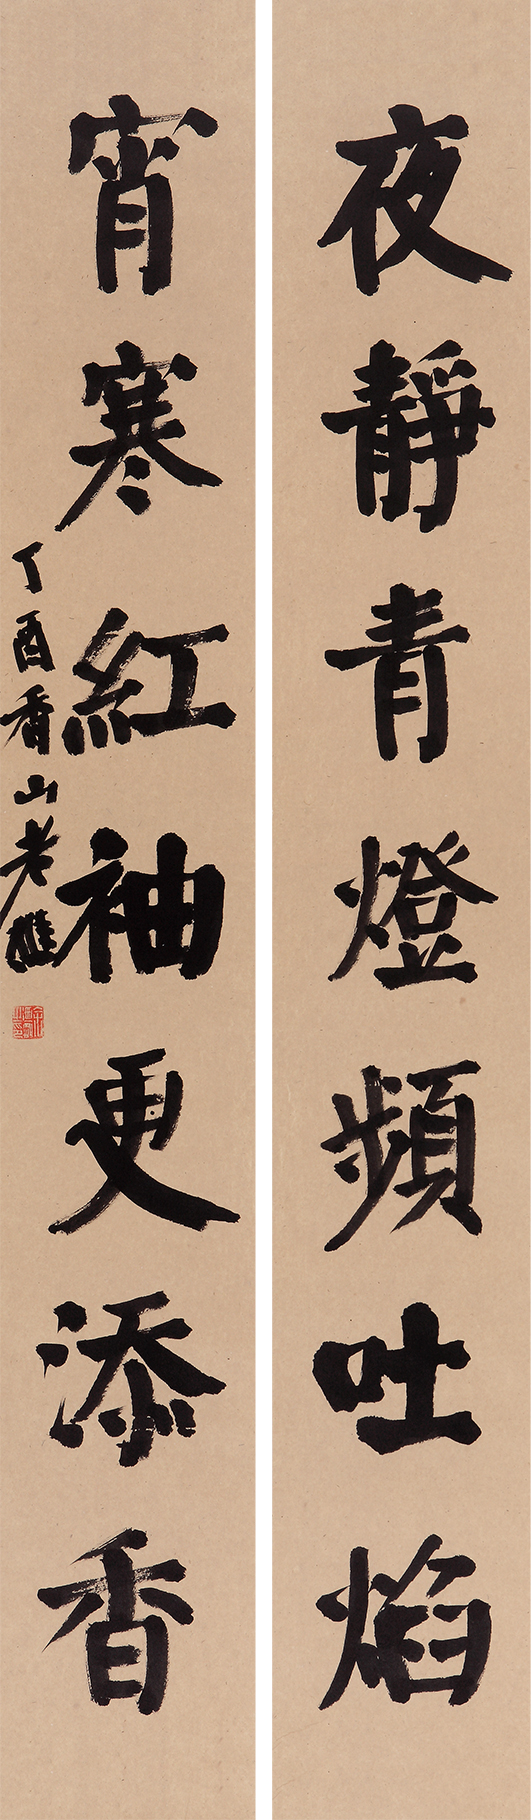 夜靜青燈頻吐焰
宵寒紅袖更添香
丁酉香山老樵